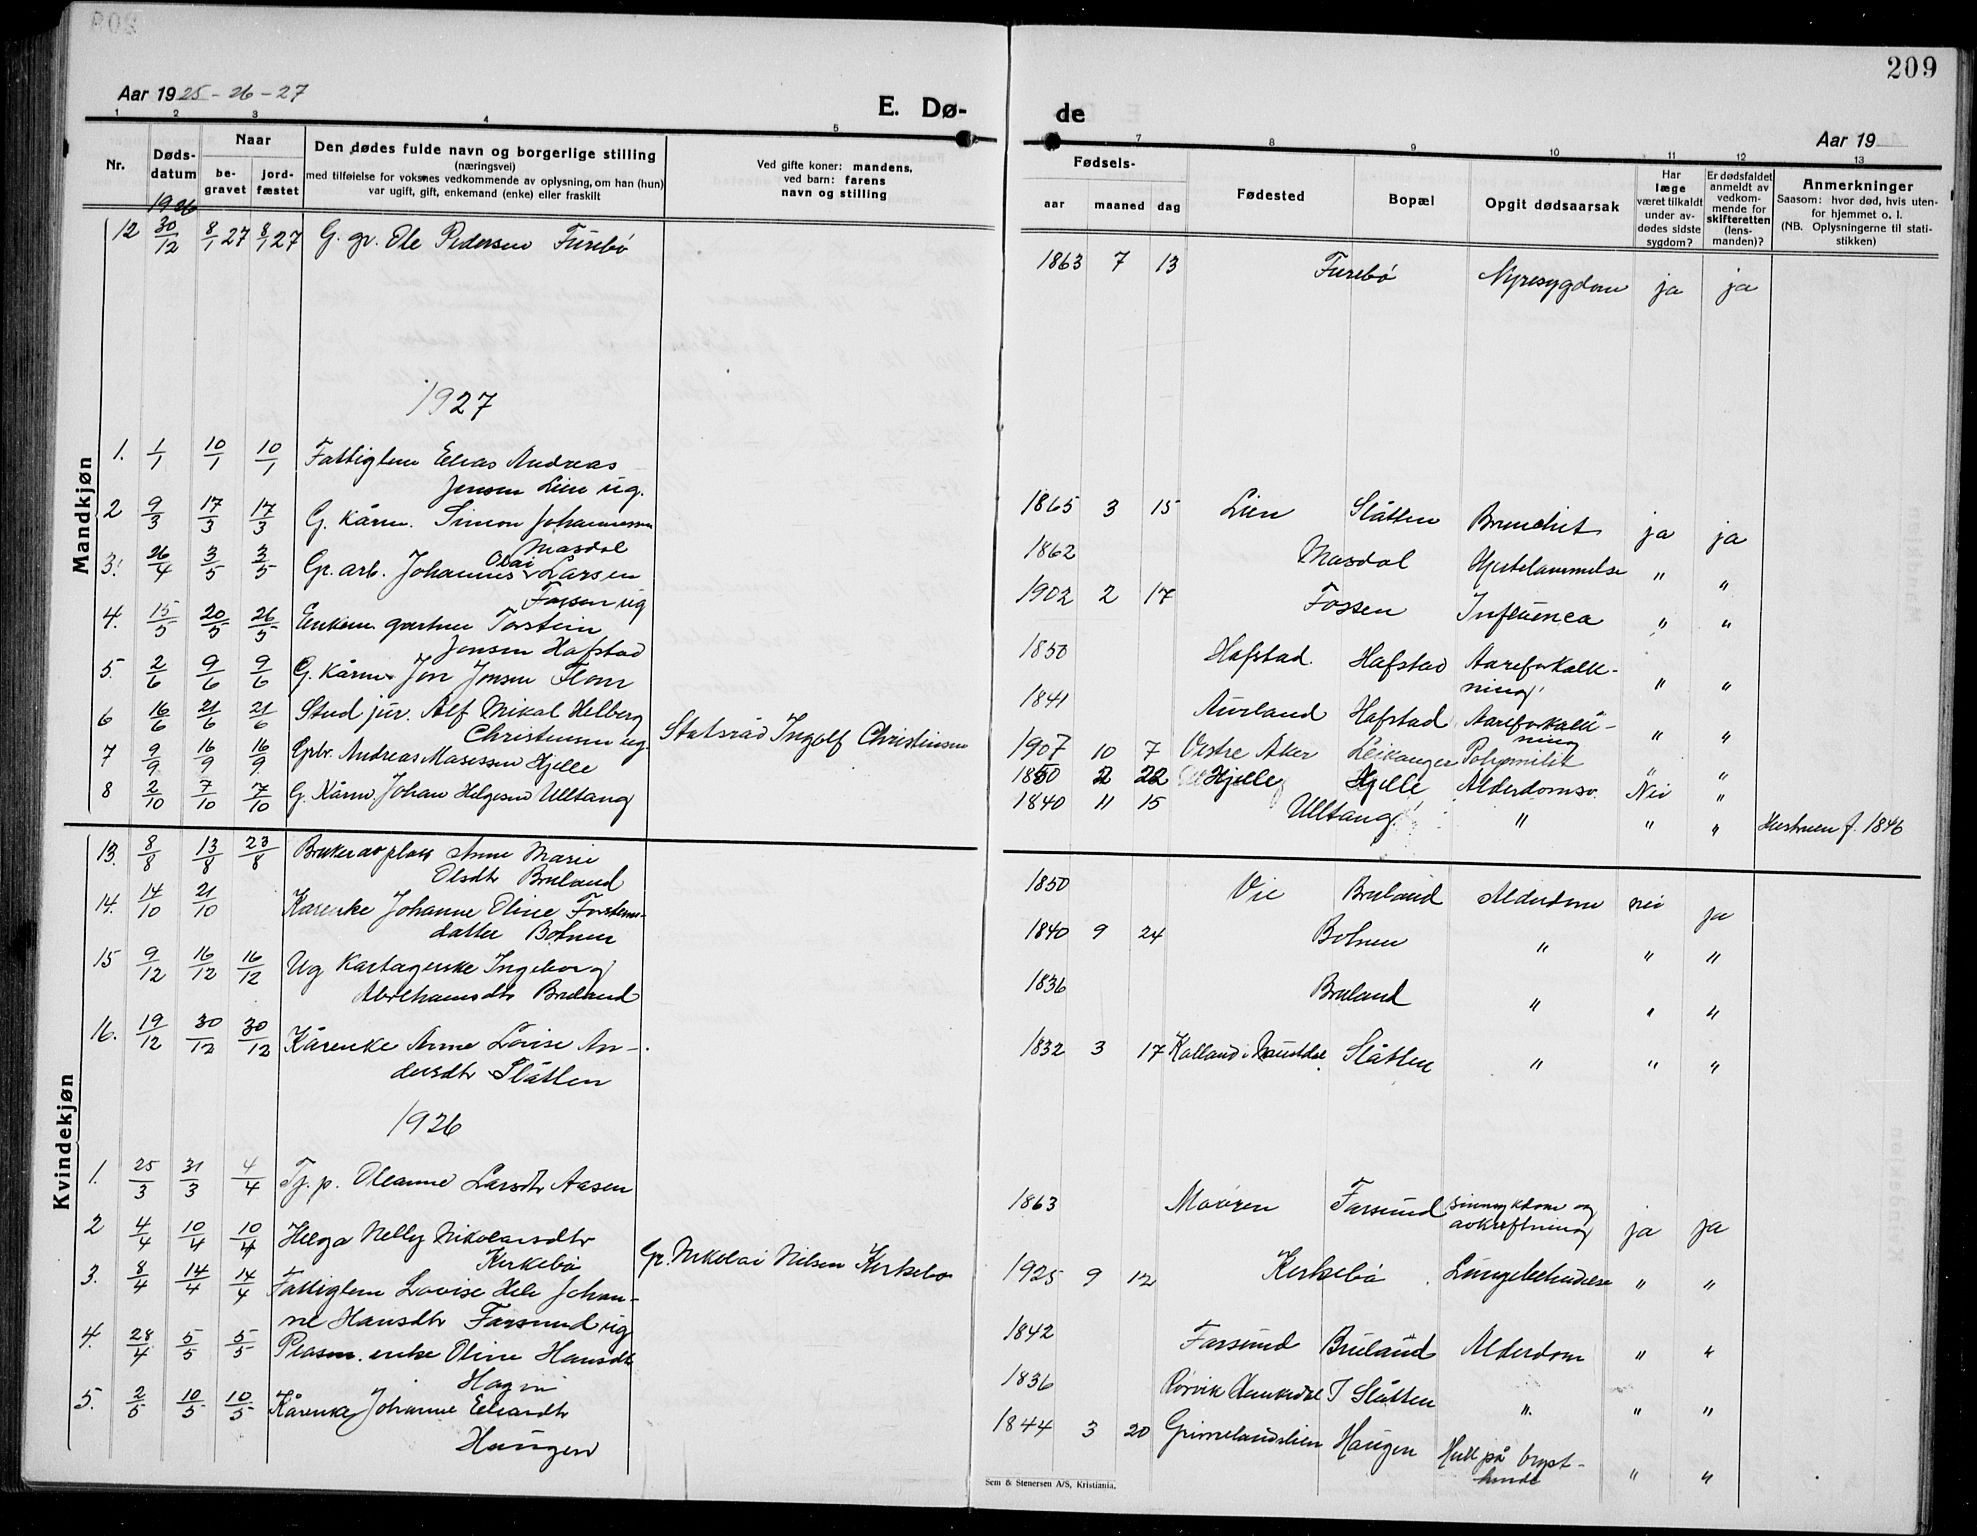 209
Aar 1925-26-27
E. Dø-
de
Aar 19
1 2 3 4 5 7 8 9 10 11 12 13
Nr.
Døds-
datum
Naar
be-
gravet
jord-
fæstet
Den dødes fulde navn og borgerlige stilling
(næringsvei)
med tilføielse for voksnes vedkommende av oplysning, om han (hun)
var ugift, gift, enkemand (enke) eller fraskilt
Ved gifte koner: mandens,
ved barn: farens
navn og stilling
Fødsels-
aar maaned dag
Fødested
Bopæl
Opgit dødsaarsak
Har
læge
været tilkaldt
under av-
dødes sidste
sygdom?
Er dødsfaldet
anmeldt av
vedkom-
mende for
skifteretten
(lens-
manden)?
Anmerkninger
Saasom: hvor død, hvis uten-
for hjemmet o. l.
(NB. Oplysningerne til stati-
stikken)
Mandkjøn
1926
12 30/12 8/1 27 8/1 27 G. gr. Ole Pedersen Furebø 1863 7 13 Furebø Nyresygdom ja ja
1927
1. 1/1 10/1 10/1 Fattiglem Elias Andreas
Jensen Lien ug. 1865 3 15 Lien Slåtten Bronchit ja ja
2 9/3 17/3 17/3 G. kårm. Simon Johannessen
Masdal 1862 Masdal Hjertelammelse " "
3. 26/4 3/5 3/5 Gr. arb. Johannes Olai Larsen
Fossen ug 1902 2 17 Fossen Influenca " "
4. 15/5 20/5 26/5 Enkem. gartner Torstein
Jensen Hafstad 1850 Hafstad Hafstad Aareforkalk-
ning " "
5. 2/6 9/6 9/6 G. kårm. Jon Jonsen Flom 1841 Aurland Hafstad Aareforkalk-
ning " "
6 16/6 21/6 21/6 Stud jur. Alf Mikal Helberg
Christensen ug. Statsråd Ingolf Christensen 1907 10 7 Vestre Aker Leikanger Poliomilit " "
7 9/9 16/9 16/9 Grbr. Andreas Masessen Hjelle 1850 2 22 Hjelle Hjelle Alderdomsv. Nei "
8 2/10 7/10 7/10 G. Kårm. Johan Helgesen Ulltang 1840 11 15 Ulltang " " " Hustruen f. 1846
Kvindekjøn
13. 8/8 13/8 23/8 Bruker av plass Anne Marie
Olsdtr Bruland 1850 Vie Bruland Alderdom nei ja
14. 14/10 21/10 Karenke Johanne Oline Torstens-
datter Bolnen 1840 9 24 Bolnen " " "
15 9/12 16/12 16/12 Ug Kartagerske Ingeborg
Abrahamsdtr Bruland 1836 Bruland " " "
16. 19/12 30/12 30/12 Kårenke Anne Lovise An-
dersdtr Slåtten 1832 3 17 Kalland i Naustdal Slåtten " " "
1926
1. 25/3 31/3 4/4 Tj. p. Oleanne Larsdtr Aasen 1863 Farsund sinnsykdom og
avkreftning ja ja
2 4/4 10/4 10/4 Helga Nelly Nikolaisdtr
Kirkebø Gr. Nikolai Nilsen Kirkebø 1925 9 12 Kirkebø Lungebetendelse " "
3. 8/4 14/4 14/4 Fattiglem Lovise Johan-
ne Hansdtr Farsund ug 1842 Farsund Bruland Alderdom " "
4. 28/4 5/5 5/5 Plassm. enke Oline Hansdtr
Hagen 1836 Slåtten " " "
5. 2/5 10/5 10/5 Kårenke Johanne
Haugen 1844 3 20 Grimelandslien Haugen Hull på bryst-
hinde " "
Sem & Stenersen A/S, Kristiania.